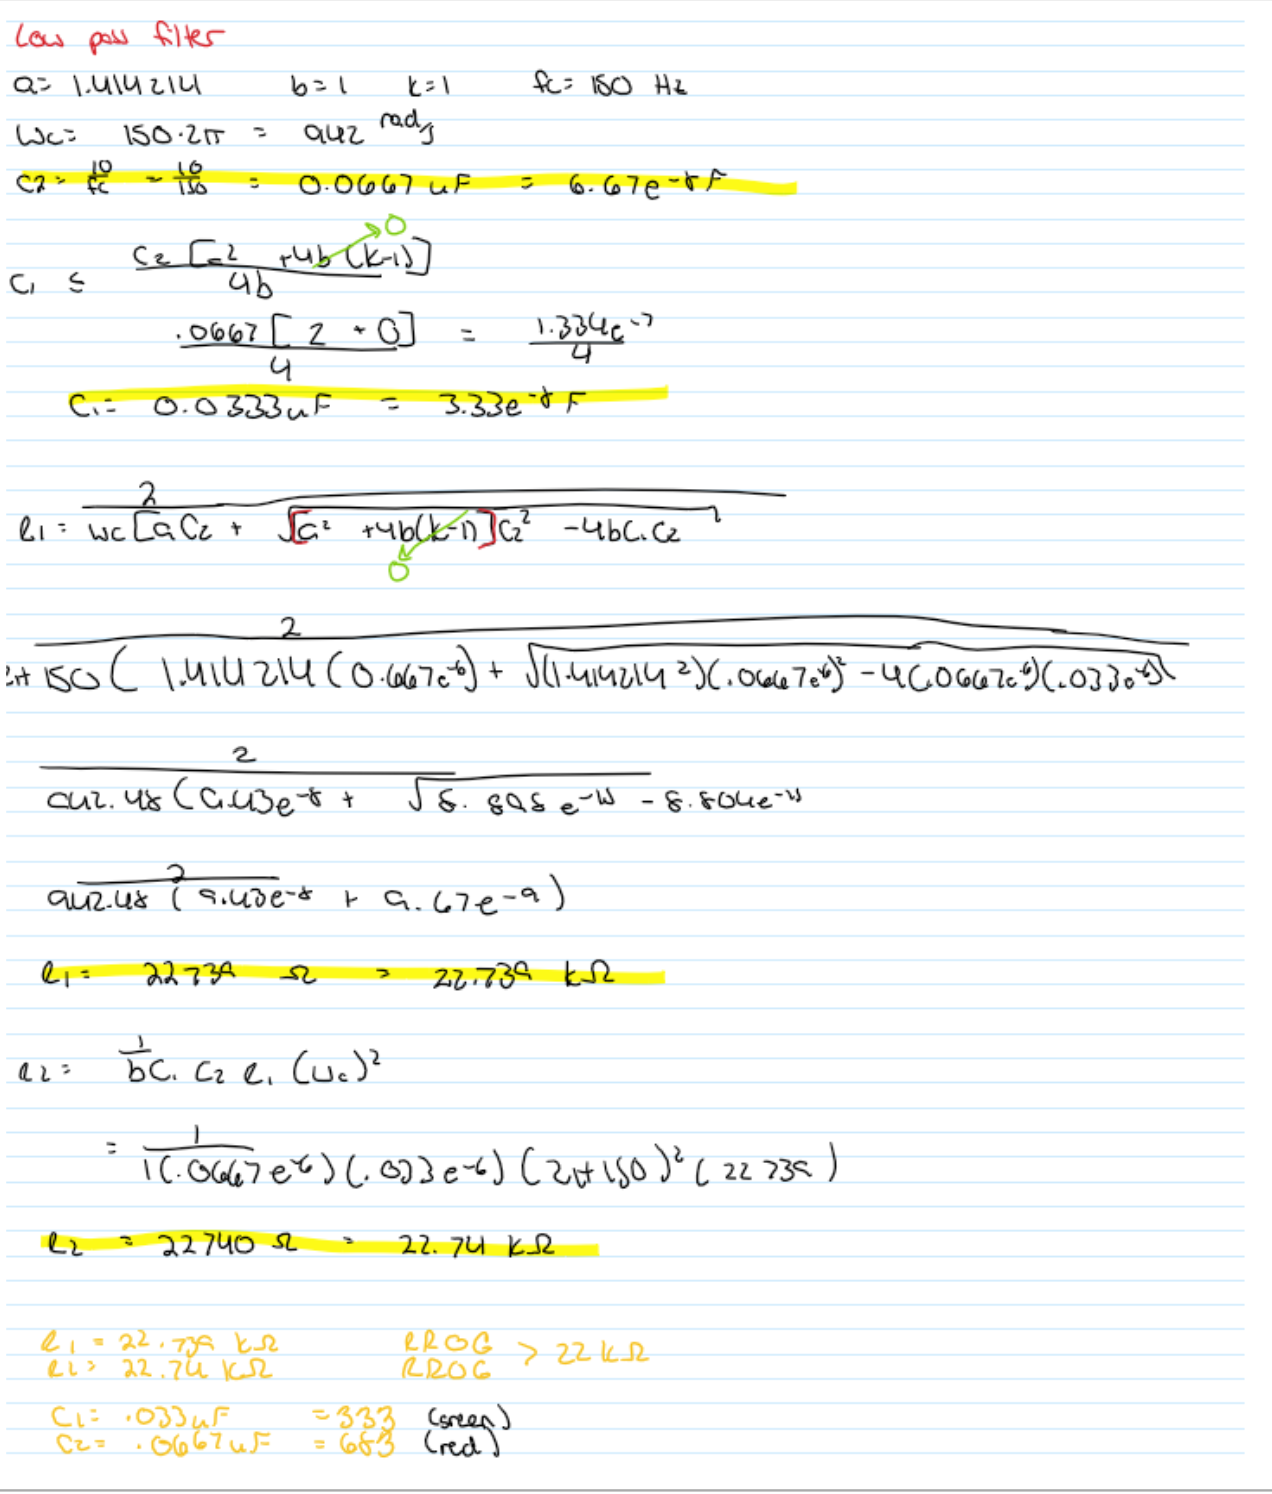 Low pass filter
a= 1.414214 b=1 k=1 fc= 150 Hz
Wc= 150·2π = 942 rad/s
C2= 10/fc = 10/150 = 0.0667 uF = 6.67e-8 F
C1 ≤ C2 [a² +4b (k-1)] / 4b → 0
.0667 [ 2 + 0 ] / 4 = 1.334e-7 / 4
C1= 0.0333uF = 3.33e-8 F
R1= 2 / wc [a C2 + √[a² +4b(k-1)]C2² -4bC1C2 → 0
2 / 2π 150 ( 1.414214 (0.667e-6) + √(1.414214²)(.0667e-6)² -4(.0667e-6)(.033e-6)
2 / 942.48 (9.43e-8 + √8.898e-15 - 8.804e-15
2 / 942.48 ( 9.43e-8 + 9.67e-9 )
R1= 22739 Ω = 22.739 kΩ
R2= 1 / bC1 C2 R1 (wc)²
= 1 / 1(.0667e-6) (.033e-6) (2π150)² (22739)
R2 = 22740 Ω = 22.74 kΩ
R1 = 22.739 kΩ RROG > 22 kΩ
R2= 22.74 kΩ RROG
C1= .033uF =333 (green)
C2= .0667uF = 683 (red)